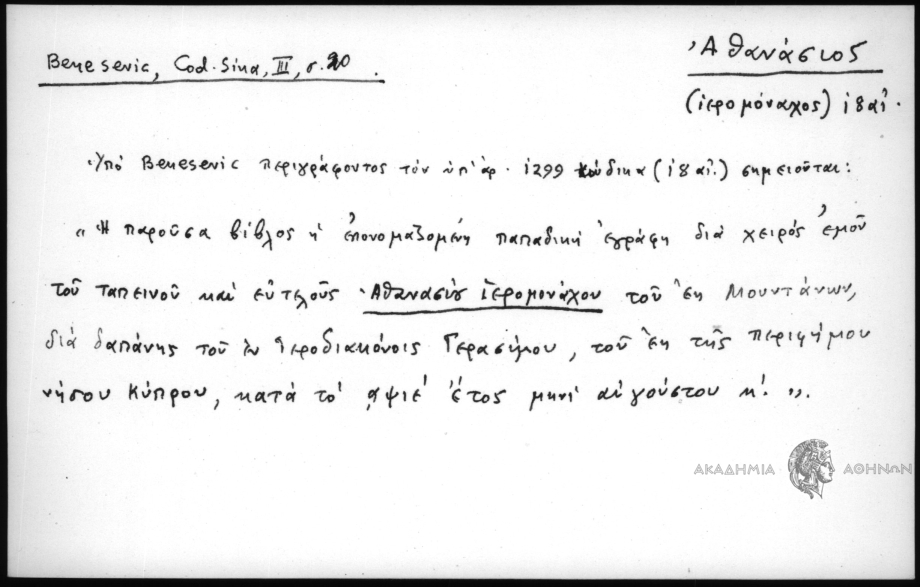 Benesevic, Cod. Sina, III, σ. 20.
Ἀθανάσιος
(ἱερομόναχος) ι8αἰ.
Ὑπό Benesevic περιγράφοντος τόν ὑπ' ἀρ. 1299 κώδικα (ι8 αἰ.) σημειοῦται:
«Ἡ παροῦσα βίβλος ἡ ἐπονομαζομένη παπαδική ἐγράφη διά χειρός ἐμοῦ
τοῦ ταπεινοῦ καί εὐτελοῦς Ἀθανασίου ἱερομονάχου τοῦ ἐκ Μουντάνων,
διά δαπάνης τοῦ ἐν ἱεροδιακόνοις Γερασίμου, τοῦ ἐκ τῆς περιφήμου
νήσου Κύπρου, κατά τό ͵αψιέ ἔτος μηνί αὐγούστου κ΄.».
ΑΚΑΔΗΜΙΑ ΑΘΗΝΩΝ